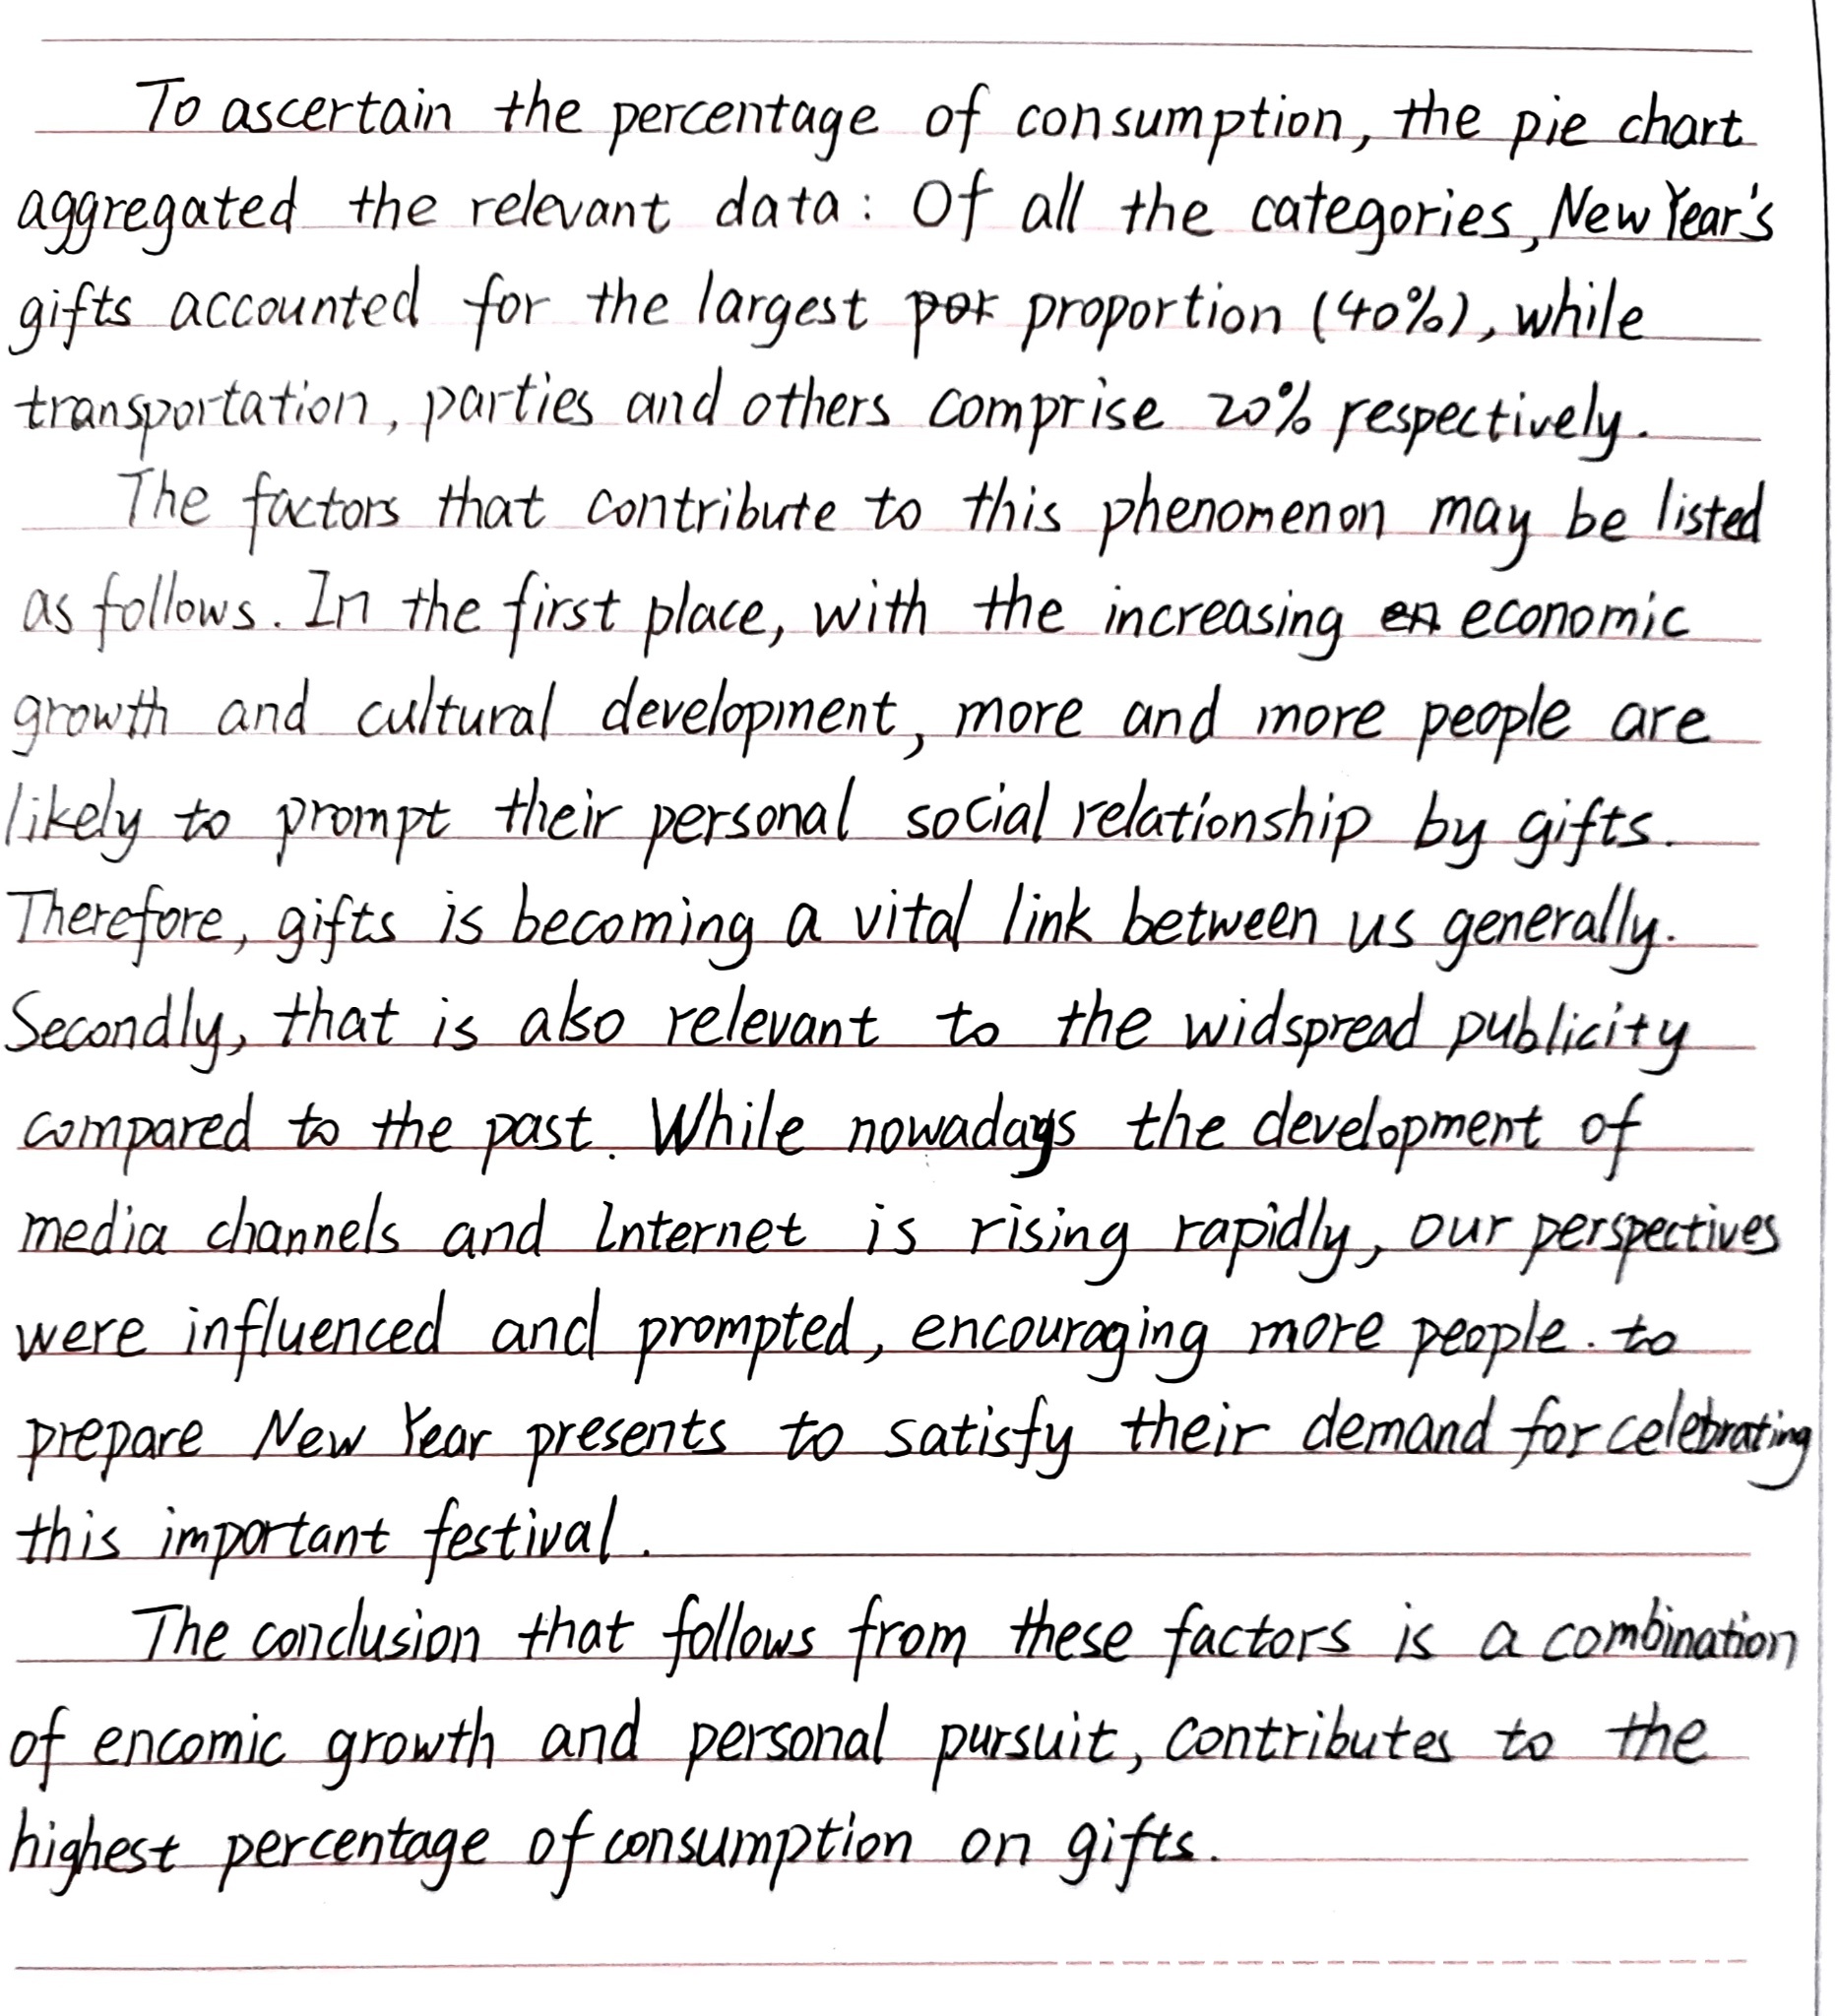 To ascertain the percentage of consumption, the pie chart
aggregated the relevant data: Of all the categories, New Year's
gifts accounted for the largest por proportion (40%), while
transportation, parties and others comprise 20% respectively.
The factors that contribute to this phenomenon may be listed
as follows. In the first place, with the increasing en economic
growth and cultural development, more and more people are
likely to prompt their personal social relationship by gifts.
Therefore, gifts is becoming a vital link between us generally.
Secondly, that is also relevant to the widspread publicity
compared to the past. While nowadays the development of
media channels and Internet is rising rapidly, our perspectives
were influenced and prompted, encouraging more people. to
prepare New Year presents to satisfy their demand for celebrating
this important festival.
The conclusion that follows from these factors is a combination
of encomic growth and personal pursuit, contributes to the
highest percentage of consumption on gifts.